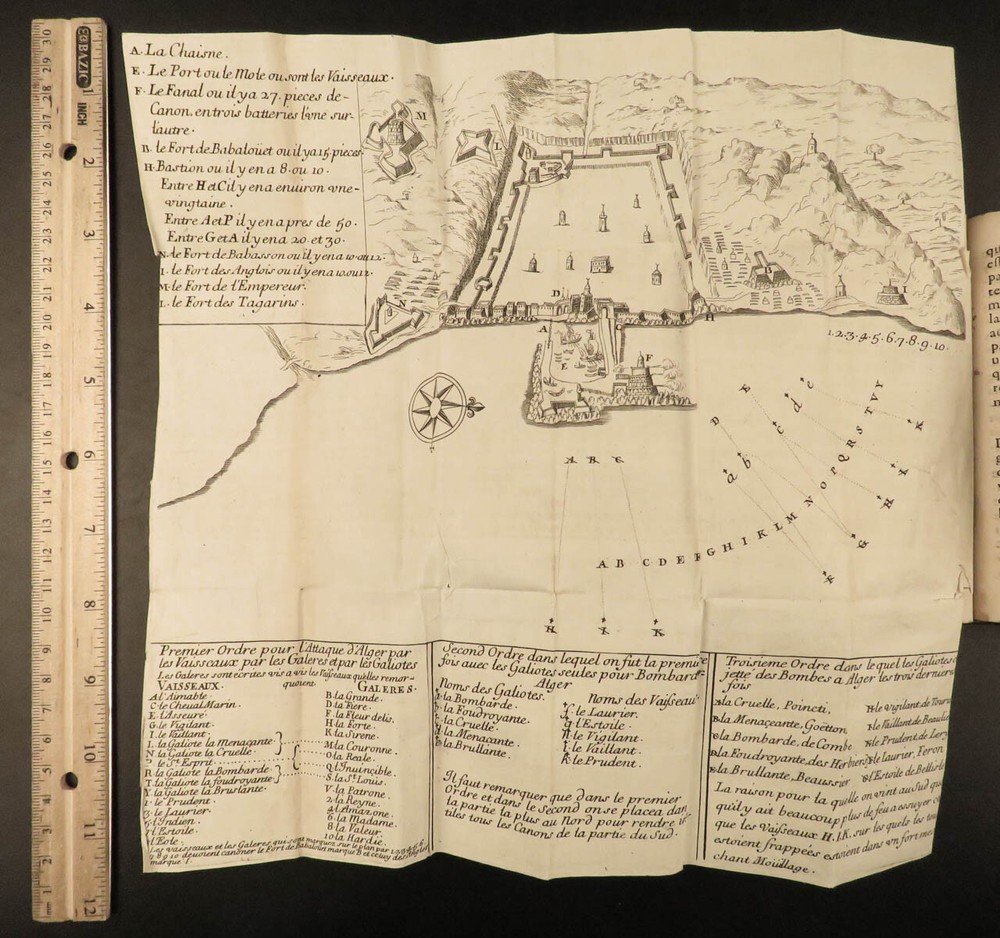 A. La Chaisne.
E. Le Port ou le Mole ou sont les Vaisseaux.
F. Le Fanal ou il y a 27. pieces de
Canon, en trois batteries l'une sur
l'autre.
B. le Fort de Babaloüet ou il y a 15 pieces
H. Bastion ou il y en a 8. ou 10.
Entre H et C il y en a enuiron vne
vingtaine.
Entre A et P il y en a pres de 50.
Entre G et A il y en a 20. et 30.
N. le Fort de Babasson ou il y en a 10. ou 12.
I. le Fort des Anglois ou il y en a 10. ou 12.
M. le Fort de l'Empereur.
L. le Fort des Tagarins.
M
L
N
D
A
C
E
F
H
B
I
1.2.3.4.5.6.7.8.9.10.
A B C
A B C D E F G H I K L M N O P Q R S T V Y
D E
a b c d c
H I K
F G H I K
EB BAZIC
INCH
1 2 3 4 5 6 7 8 9 10 11 12
Premier Ordre pour l'Attaque d'Alger par
les Vaisseaux par les Galeres et par les Galiotes
Les Galeres sont ecrites vis a vis les Vaisseaux qu'elles remor-
quoient
VAISSEAUX.
GALERES.
A. l'Aimable.
C. le Cheual Marin.
E. l'Asseuré.
G. le Vigilant.
I. le Vaillant.
L. la Galiote la Menaçante
N. la Galiote la Cruelle.
P. le St. Esprit
R. la Galiote la Bombarde
T. la Galiote la foudroyante
Y. la Galiote la Bruslante.
1. le Prudent.
3. le Laurier.
5. l'Indien.
7. l'Estoile.
l'Eole.
B. la Grande.
D. la Fiere.
F. la Fleur delis.
H. la Forte.
K. la Sirene.
M. la Couronne.
O. la Reale.
Q. l'Inuincible.
S. la St. Louis.
V. la Patrone.
2. la Reyne.
4. l'Amazone.
6. la Madame.
8. la Valeur.
10. la Hardie.
Les vaisseaux et les Galeres qui sont marquez sur le plan par 1.2.3.4.5.6
7.8.9.10. deuoient canoner le Fort de Babaloüet marque B et celuy des Anglois
marque I.
Second Ordre dans lequel on fut la premie
fois auec les Galiotes seules pour Bombard
Alger
Noms des Galiotes.
la Bombarde.
la Foudroyante.
la Cruelle.
la Menacante.
la Brullante.
Noms des Vaisseau
le Laurier.
l'Estoile.
le Vigilant.
le Vaillant.
K. le Prudent.
Il faut remarquer que dans le premier
Ordre et dans le Second on se placea dans
la partie la plus au Nord pour rendre
tiles tous les Canons de la partie du Sud.
Troisieme Ordre dans le quel les Galiotes
jetté des Bombes a Alger les trois dernier
fois
la Cruelle, Pointi,
la Menaçeante, Goëtton,
la Bombarde. de Combe
la Foudroyante, des Herbiers
la Brullante, Beaussier
le Vigilant de Tour
le Vaillant de Beaulieu
le Prudent de Lery
le laurier, Feron
l'Estoile de Bellisle
La raison pour la quelle on vint au Sud quo
qu'il y ait beaucoup plus de feu a essuyer
que les Vaisseaux H. I. K. sur les quels les
estoient frappées estoient dans un fort me
chant Moüillage.